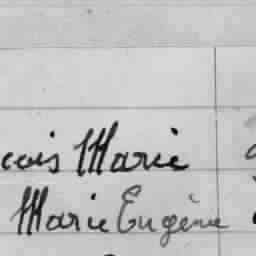 çois Marie
Marie Eugène